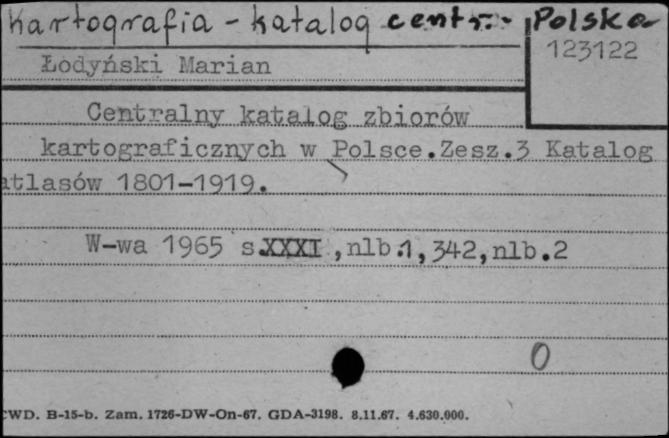 Kartografia - katalog centr. - Polska
123122
Łodyński Marian
Centralny katalog zbiorów
kartograficznych w Polsce.Zesz.3 Katalog
atlasów 1801-1919.
W-wa 1965 s.XXXI,nlb.1,342,nlb.2
0
CWD. B-15-b. Zam. 1726-DW-On-67. GDA-3198. 8.11.67. 4.630.000.